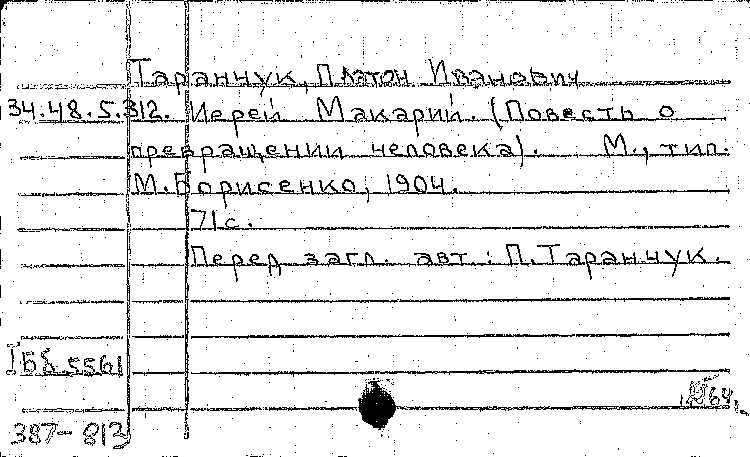 Таранчук, Платон Иванович
34.48.5.312. Иерей Макарий. (Повесть о
превращении человека). М., тип.
М. Борисенко, 1904.
71 с.
Перед загл. авт.: П. Таранчук.
5561
387-813